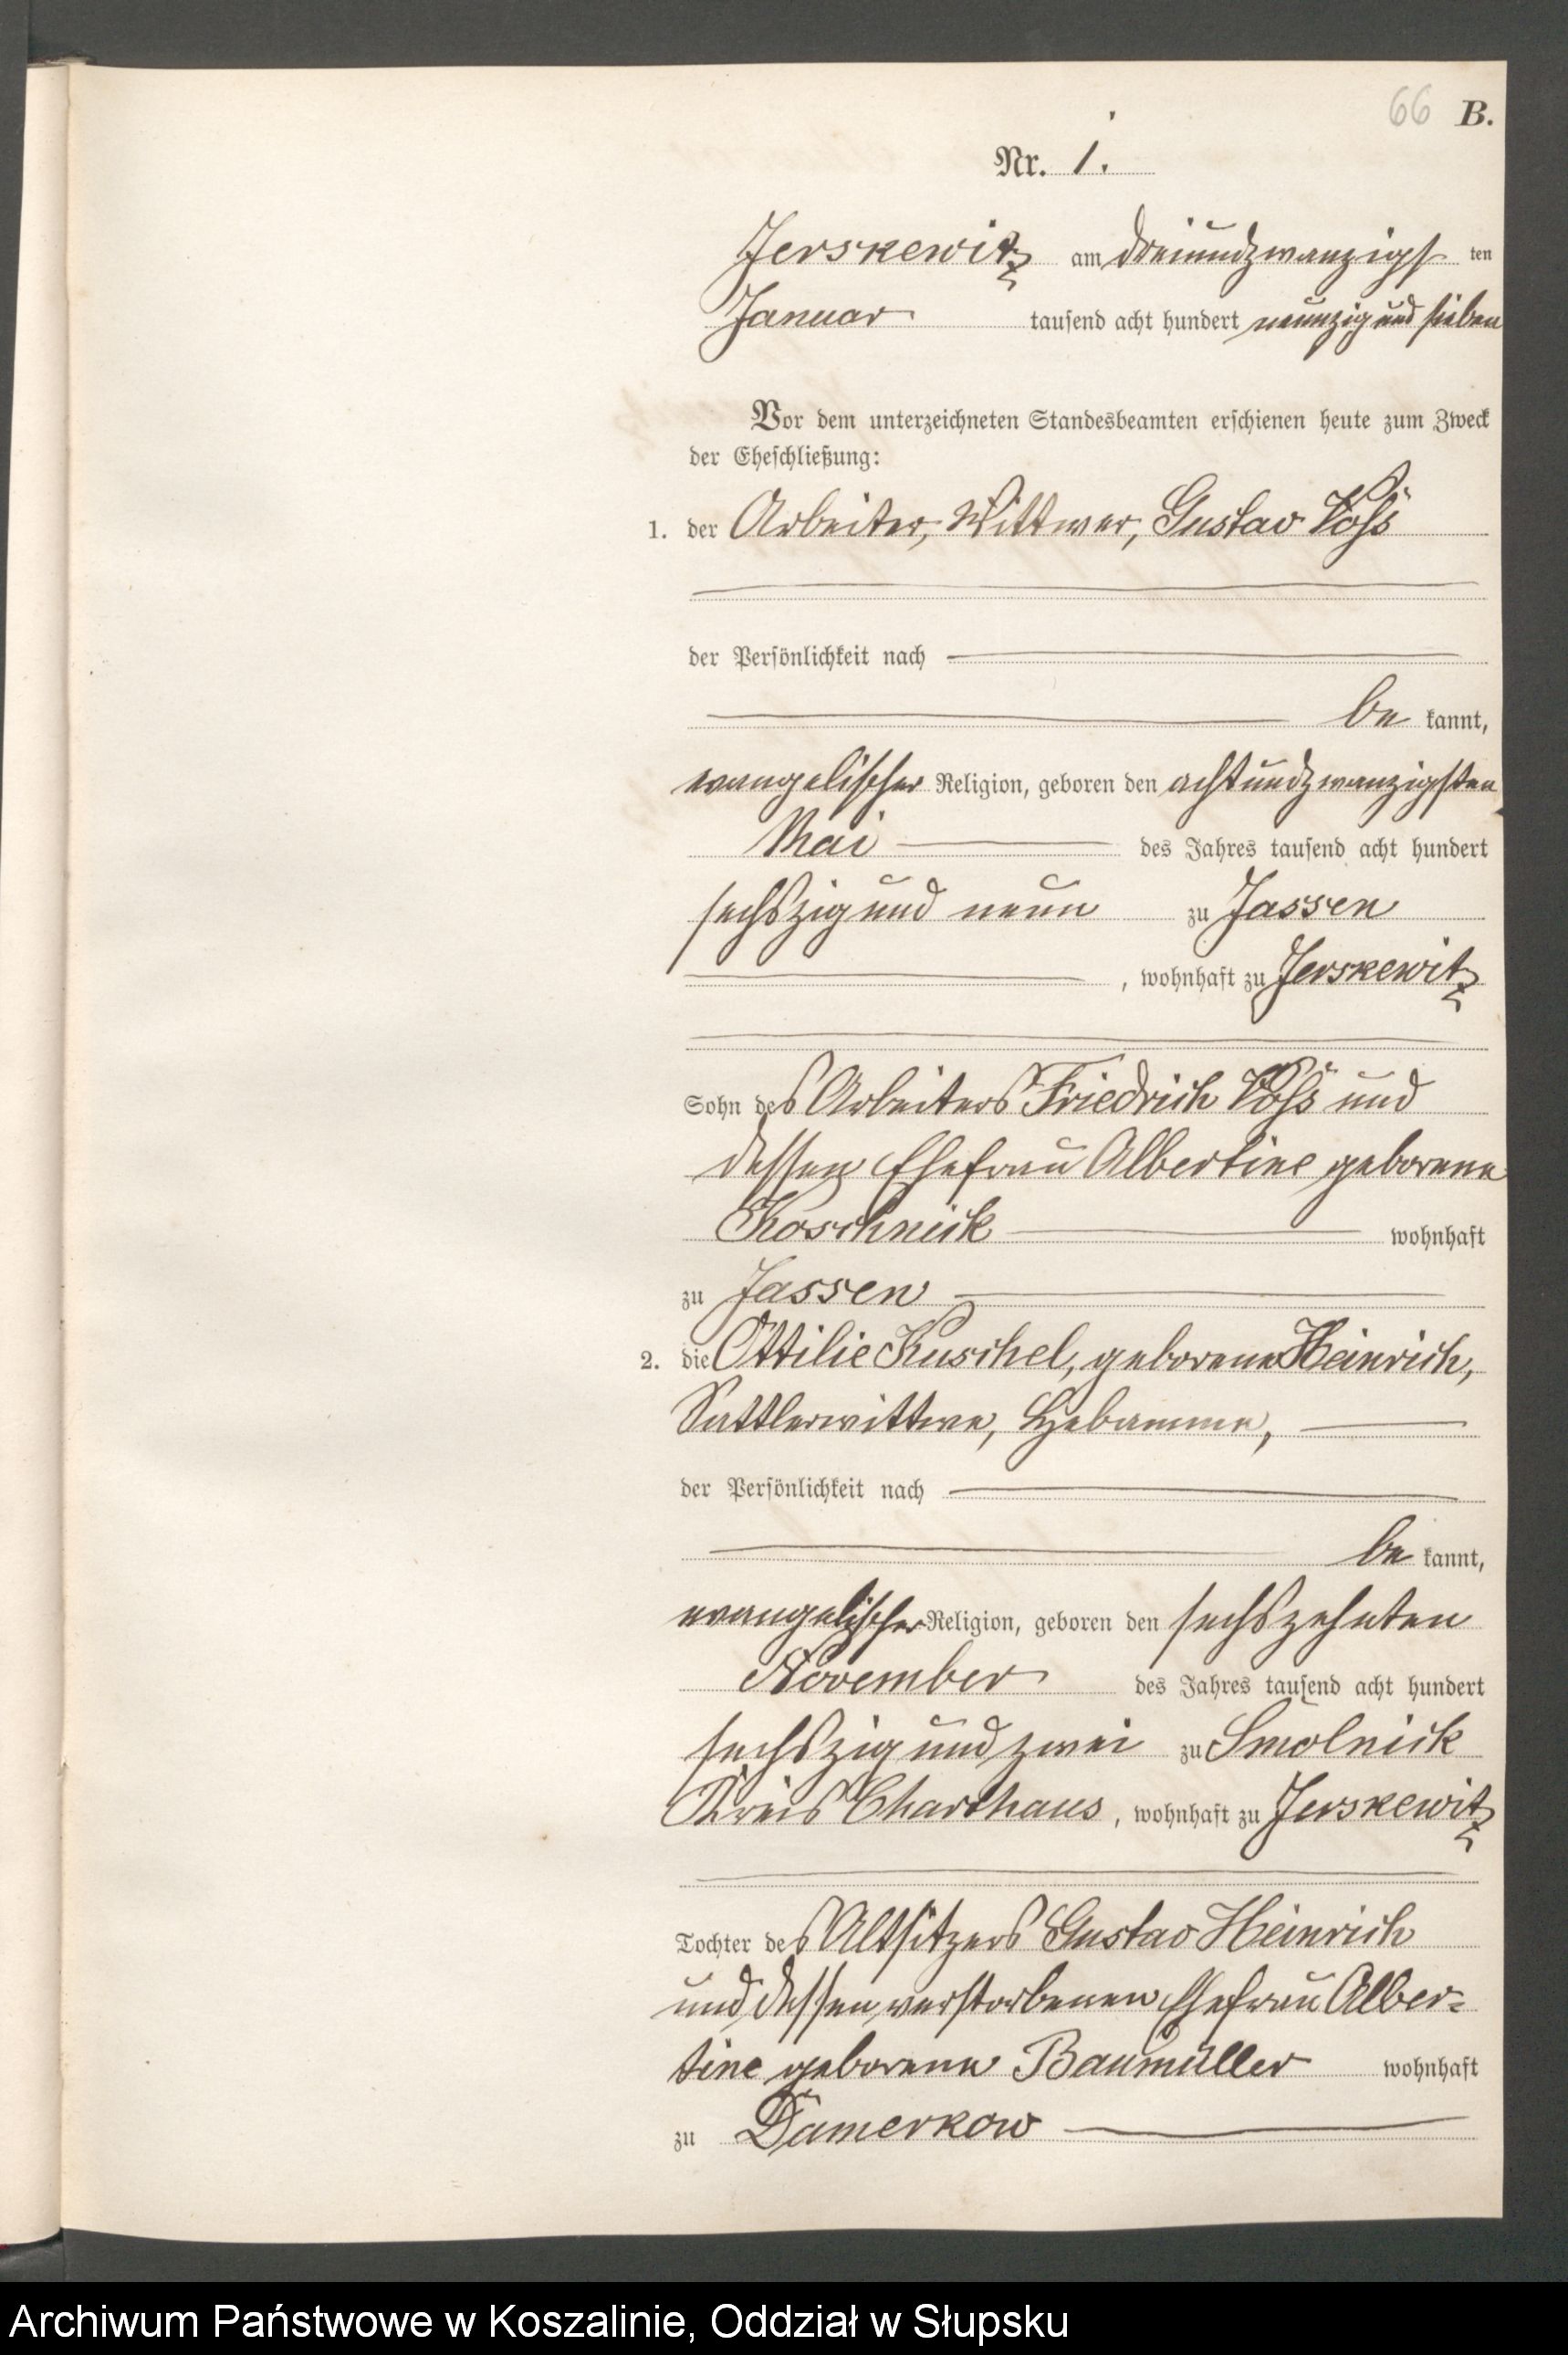 66 B.
Nr. 1.
Jerskewitz am dreiundzwanzigsten
Januar tausend acht hundert neunzig und sieben
Vor dem unterzeichneten Standesbeamten erschienen heute zum Zweck
der Eheschließung:
1. der Arbeiter, Wittwer, Gustav Voß
der Persönlichkeit nach
be kannt,
evangelischer Religion, geboren den achtundzwanzigsten
Mai des Jahres tausend acht hundert
sechszig und neun zu Jassen
, wohnhaft zu Jerskewitz
Sohn des Arbeiters Friedrich Voß und
dessen Ehefrau Albertine geborene
Koschnick wohnhaft
zu Jassen
2. die Ottilie Kuschel, geborene Heinrich,
Sattlerwittwe, Hebamme,
der Persönlichkeit nach
be kannt,
evangelischer Religion, geboren den sechszehnten
November des Jahres tausend acht hundert
sechszig und zwei zu Smolnick
Kreis Charthaus, wohnhaft zu Jerskewitz
Tochter des Altsitzers Gustav Heinrich
und dessen verstorbenen Ehefrau Alber-
tine geborene Baumüller wohnhaft
zu Damerkow
Archiwum Państwowe w Koszalinie, Oddział w Słupsku